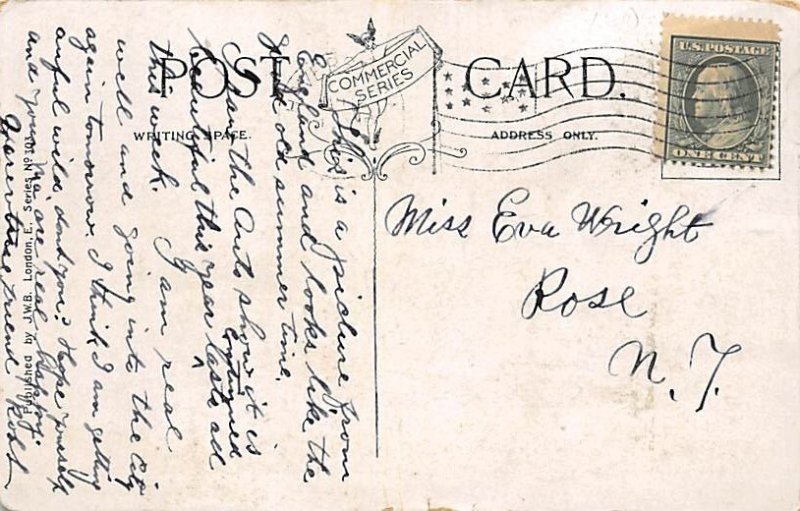 POST CARD.
COMMERCIAL
SERIES
WRITING SPACE.
ADDRESS ONLY.
U.S. POSTAGE
ONE CENT
This is a picture from
England and looks like the
good old summer time.
I saw the Auto show it is
beautiful this year lasts all
this week. I am real
well and going into the city
again tomorrow. I think I am getting
awful wild, dont you? Hope yourself
and your Ma, are real happy.
Your true friend
Miss Eva Wright
Rose
N. Y.
Published by J.W.B. London, E. Series No 101